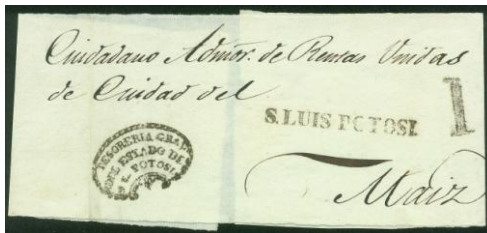 Ciudadano Admor. de Rentas Unidas
de Ciudad del
S. LUIS POTOSI.
1
TESORERIA GRAL
DEL ESTADO DE
S. L. POTOSI
Maiz